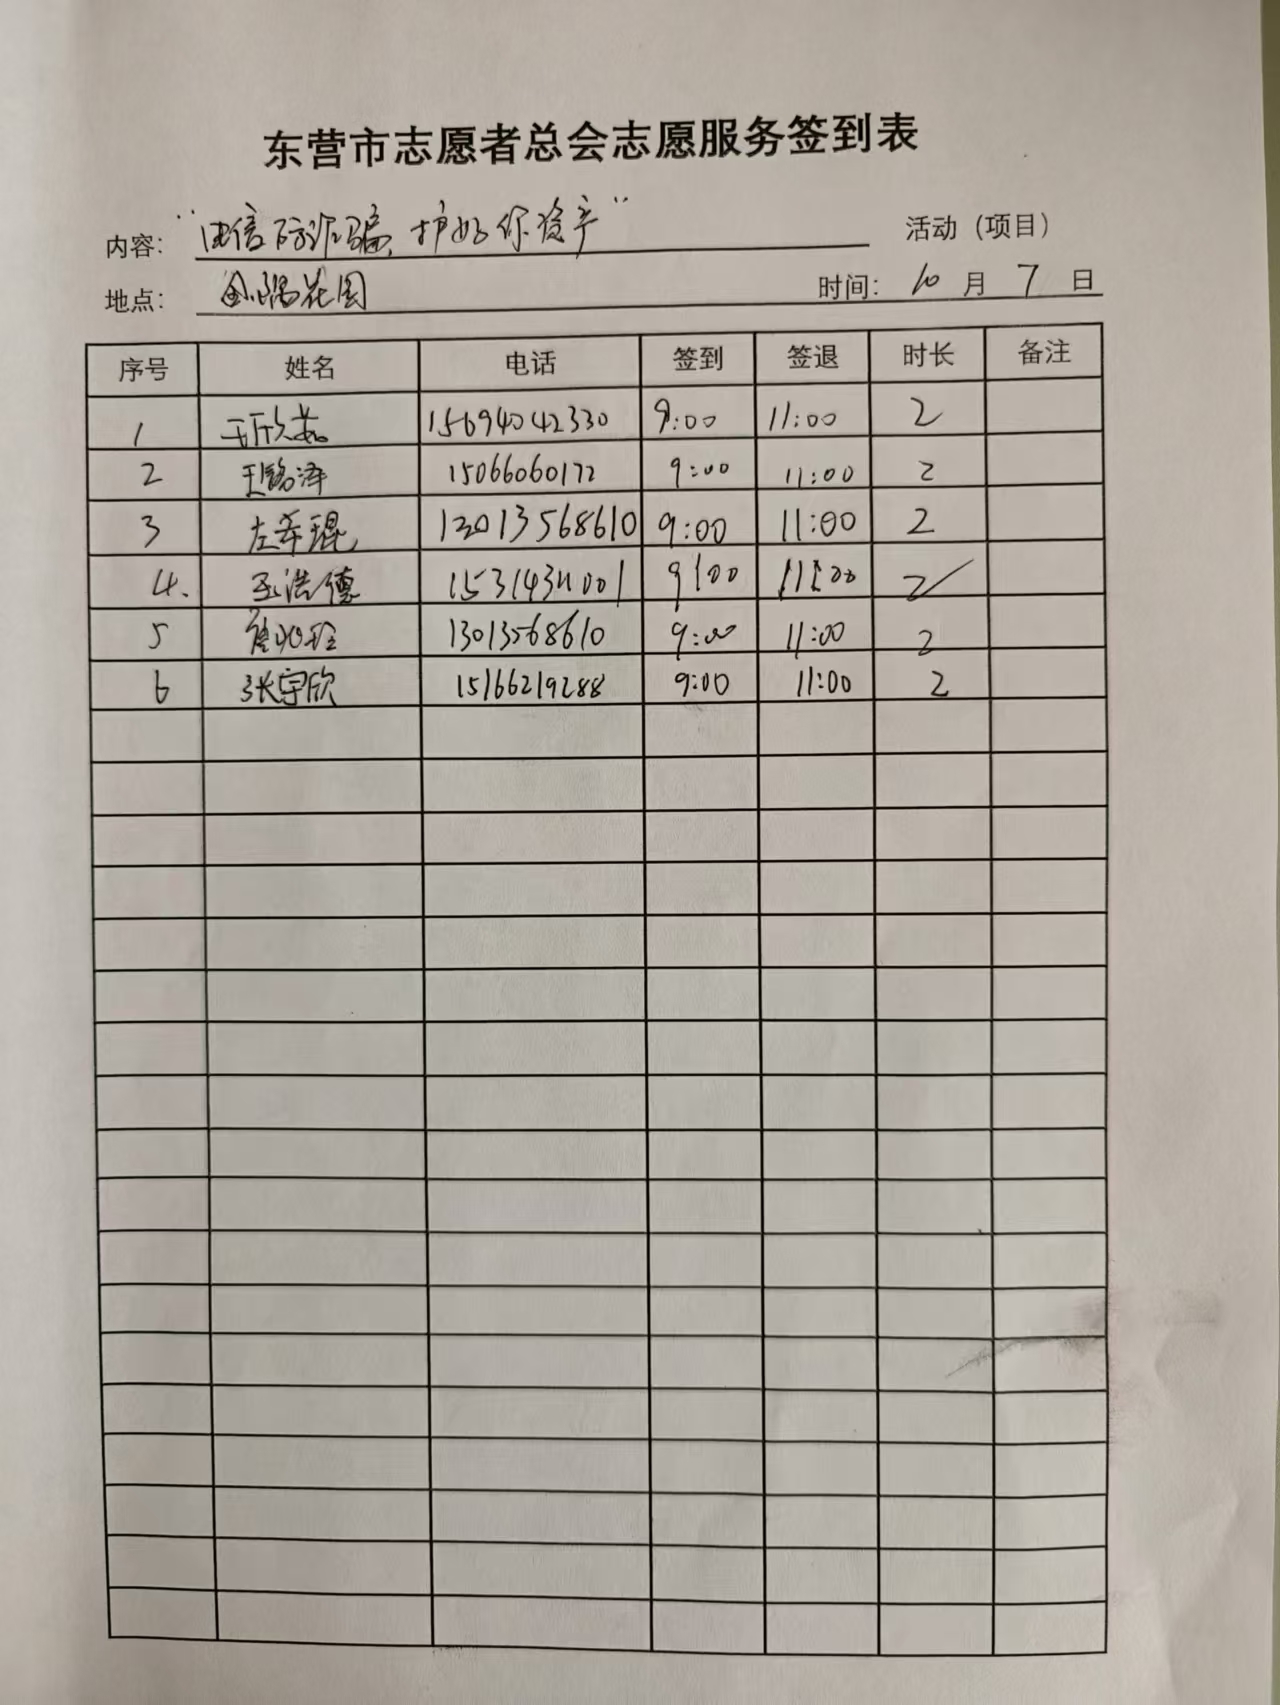 东营市志愿者总会志愿服务签到表
内容: "电信防诈骗, 护好你资产" 活动 (项目)
地点: 金隅花园 时间: 10 月 7 日
序号 姓名 电话 签到 签退 时长 备注
1 于欣茹 15694042330 9:00 11:00 2
2 王铭泽 15066060172 9:00 11:00 2
3 左希琨 13013568610 9:00 11:00 2
4. 浩德 9:00 11:00 2
5 13013568610 9:00 11:00 2
6 张宇欣 15166219288 9:00 11:00 2